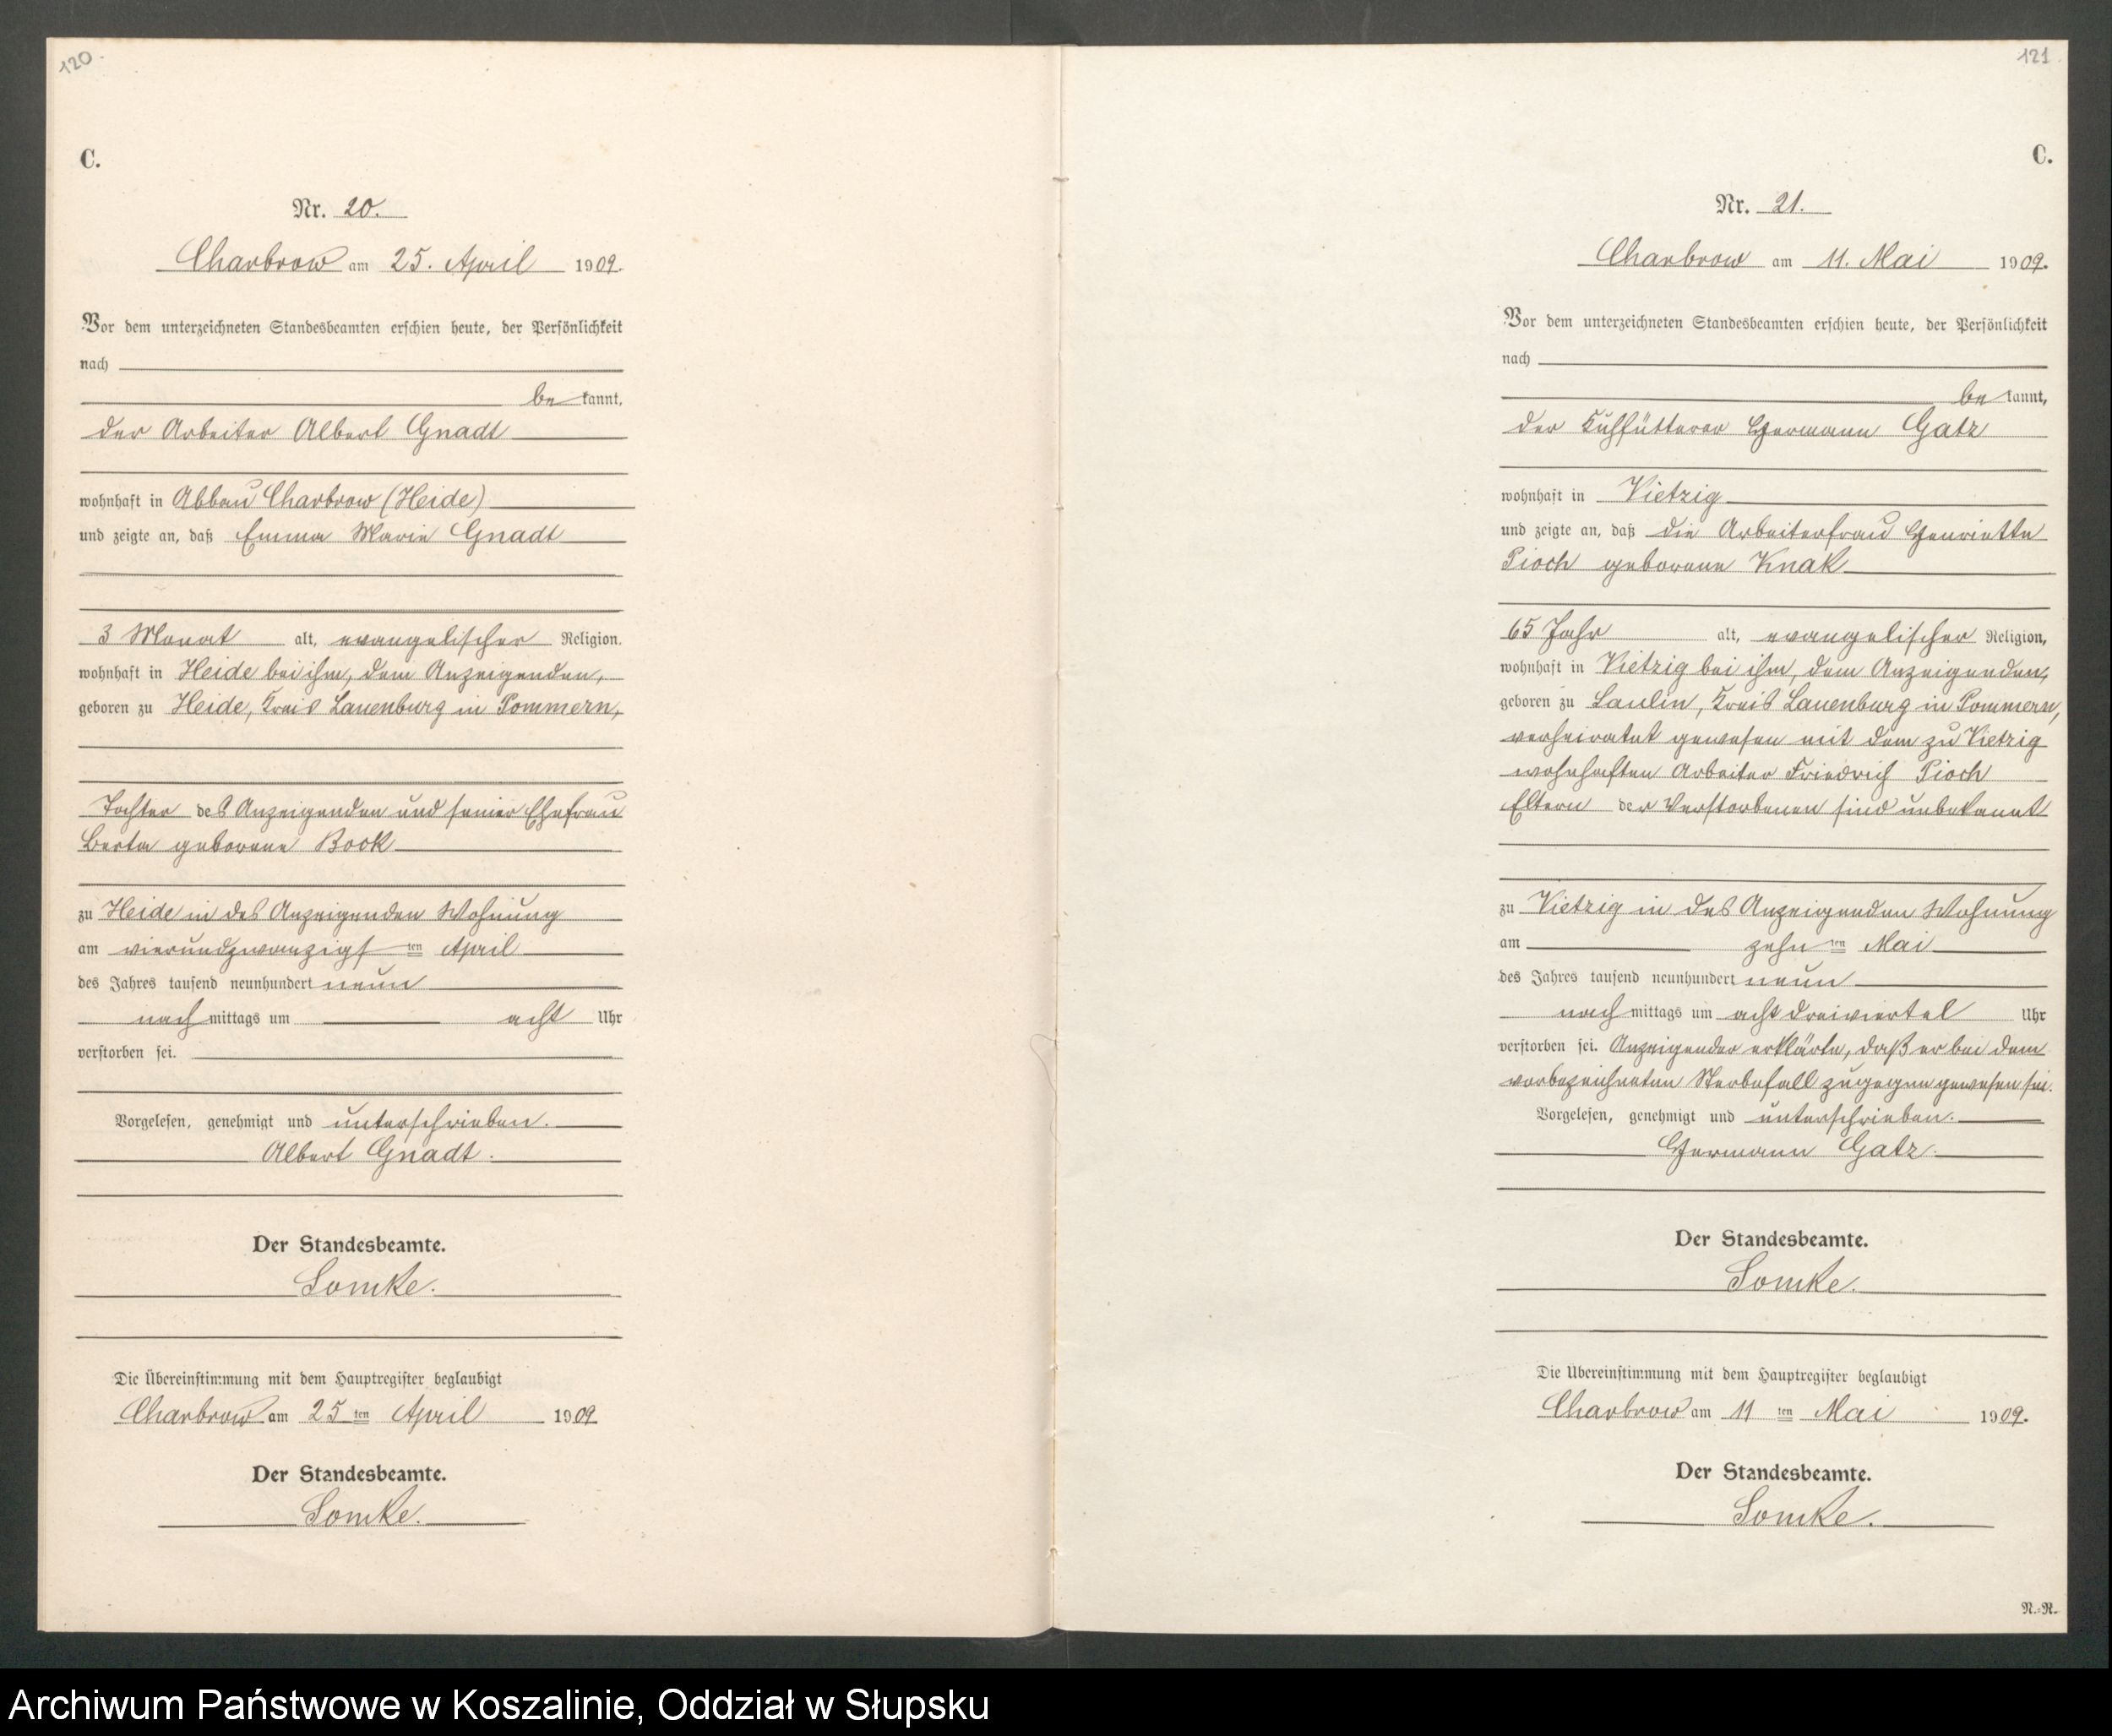 120.
C.
Nr. 20.
Charbrow am 25. April 1909.
Vor dem unterzeichneten Standesbeamten erschien heute, der Persönlichkeit
nach
be kannt,
der Arbeiter Albert Gnadt
wohnhaft in Abbau Charbrow (Heide)
und zeigte an, daß Emma Marie Gnadt
3 Monat alt, evangelischer Religion.
wohnhaft in Heide bei ihm, dem Anzeigenden,
geboren zu Heide, Kreis Lauenburg in Pommern,
Tochter des Anzeigenden und seiner Ehefrau
Berta geborene Bock
zu Heide in des Anzeigenden Wohnung
am vierundzwanzigsten April
des Jahres tausend neunhundert neun
nachmittags um acht Uhr
verstorben sei.
Vorgelesen, genehmigt und unterschrieben.
Albert Gnadt.
Der Standesbeamte.
Somke.
Die Übereinstimmung mit dem Hauptregister beglaubigt
Charbrow am 25ten April 1909
Der Standesbeamte.
Somke.
121.
C.
Nr. 21.
Charbrow am 11. Mai 1909.
Vor dem unterzeichneten Standesbeamten erschien heute, der Persönlichkeit
nach
be kannt,
der Kuhfütterer Hermann Gatz
wohnhaft in Vietzig
und zeigte an, daß die Arbeiterfrau Henriette
Pioch geborene Knak
65 Jahr alt, evangelischer Religion,
wohnhaft in Vietzig bei ihm, dem Anzeigenden,
geboren zu Saulin, Kreis Lauenburg in Pommern,
verheiratet gewesen mit dem zu Vietzig
wohnhaften Arbeiter Friedrich Pioch
Eltern der Verstorbenen sind unbekannt
zu Vietzig in des Anzeigenden Wohnung
am zehnten Mai
des Jahres tausend neunhundert neun
nachmittags um acht dreiviertel Uhr
verstorben sei. Anzeigender erklärte, daß er bei dem
vorbezeichneten Sterbefall zugegen gewesen sei.
Vorgelesen, genehmigt und unterschrieben.
Hermann Gatz.
Der Standesbeamte.
Somke.
Die Übereinstimmung mit dem Hauptregister beglaubigt
Charbrow am 11ten Mai 1909.
Der Standesbeamte.
Somke.
N.-R.
Archiwum Państwowe w Koszalinie, Oddział w Słupsku